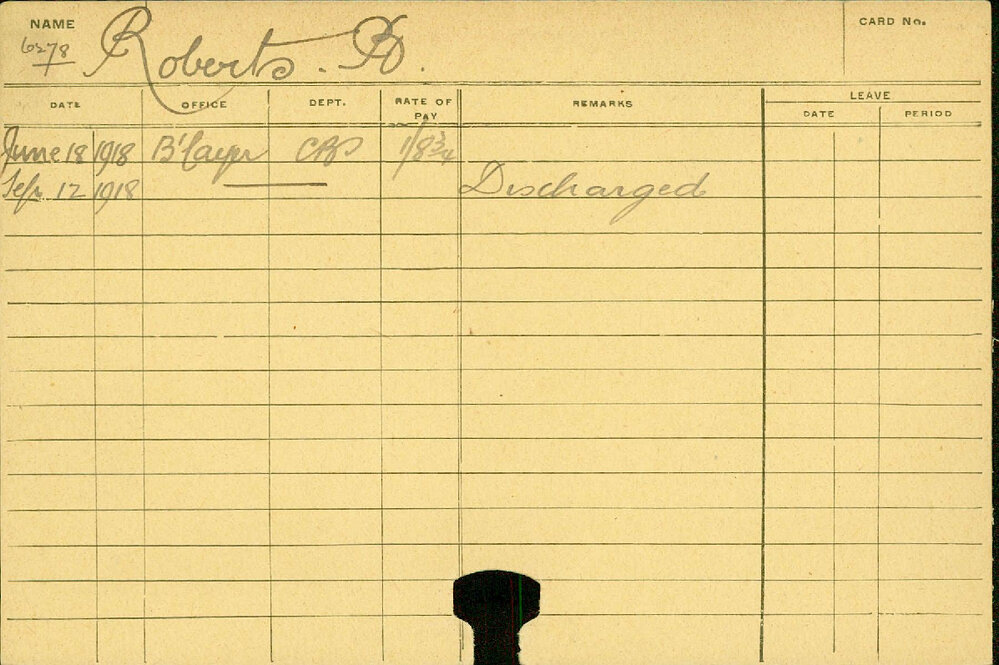 NAME
CARD No.
6278
7
Roberts.
DATE OFFICE DEPT. RATE OF PAY REMARKS LEAVE
DATE PERIOD
June 18 1918 B'layer 1/8¾
Sep. 12 1918 Discharged